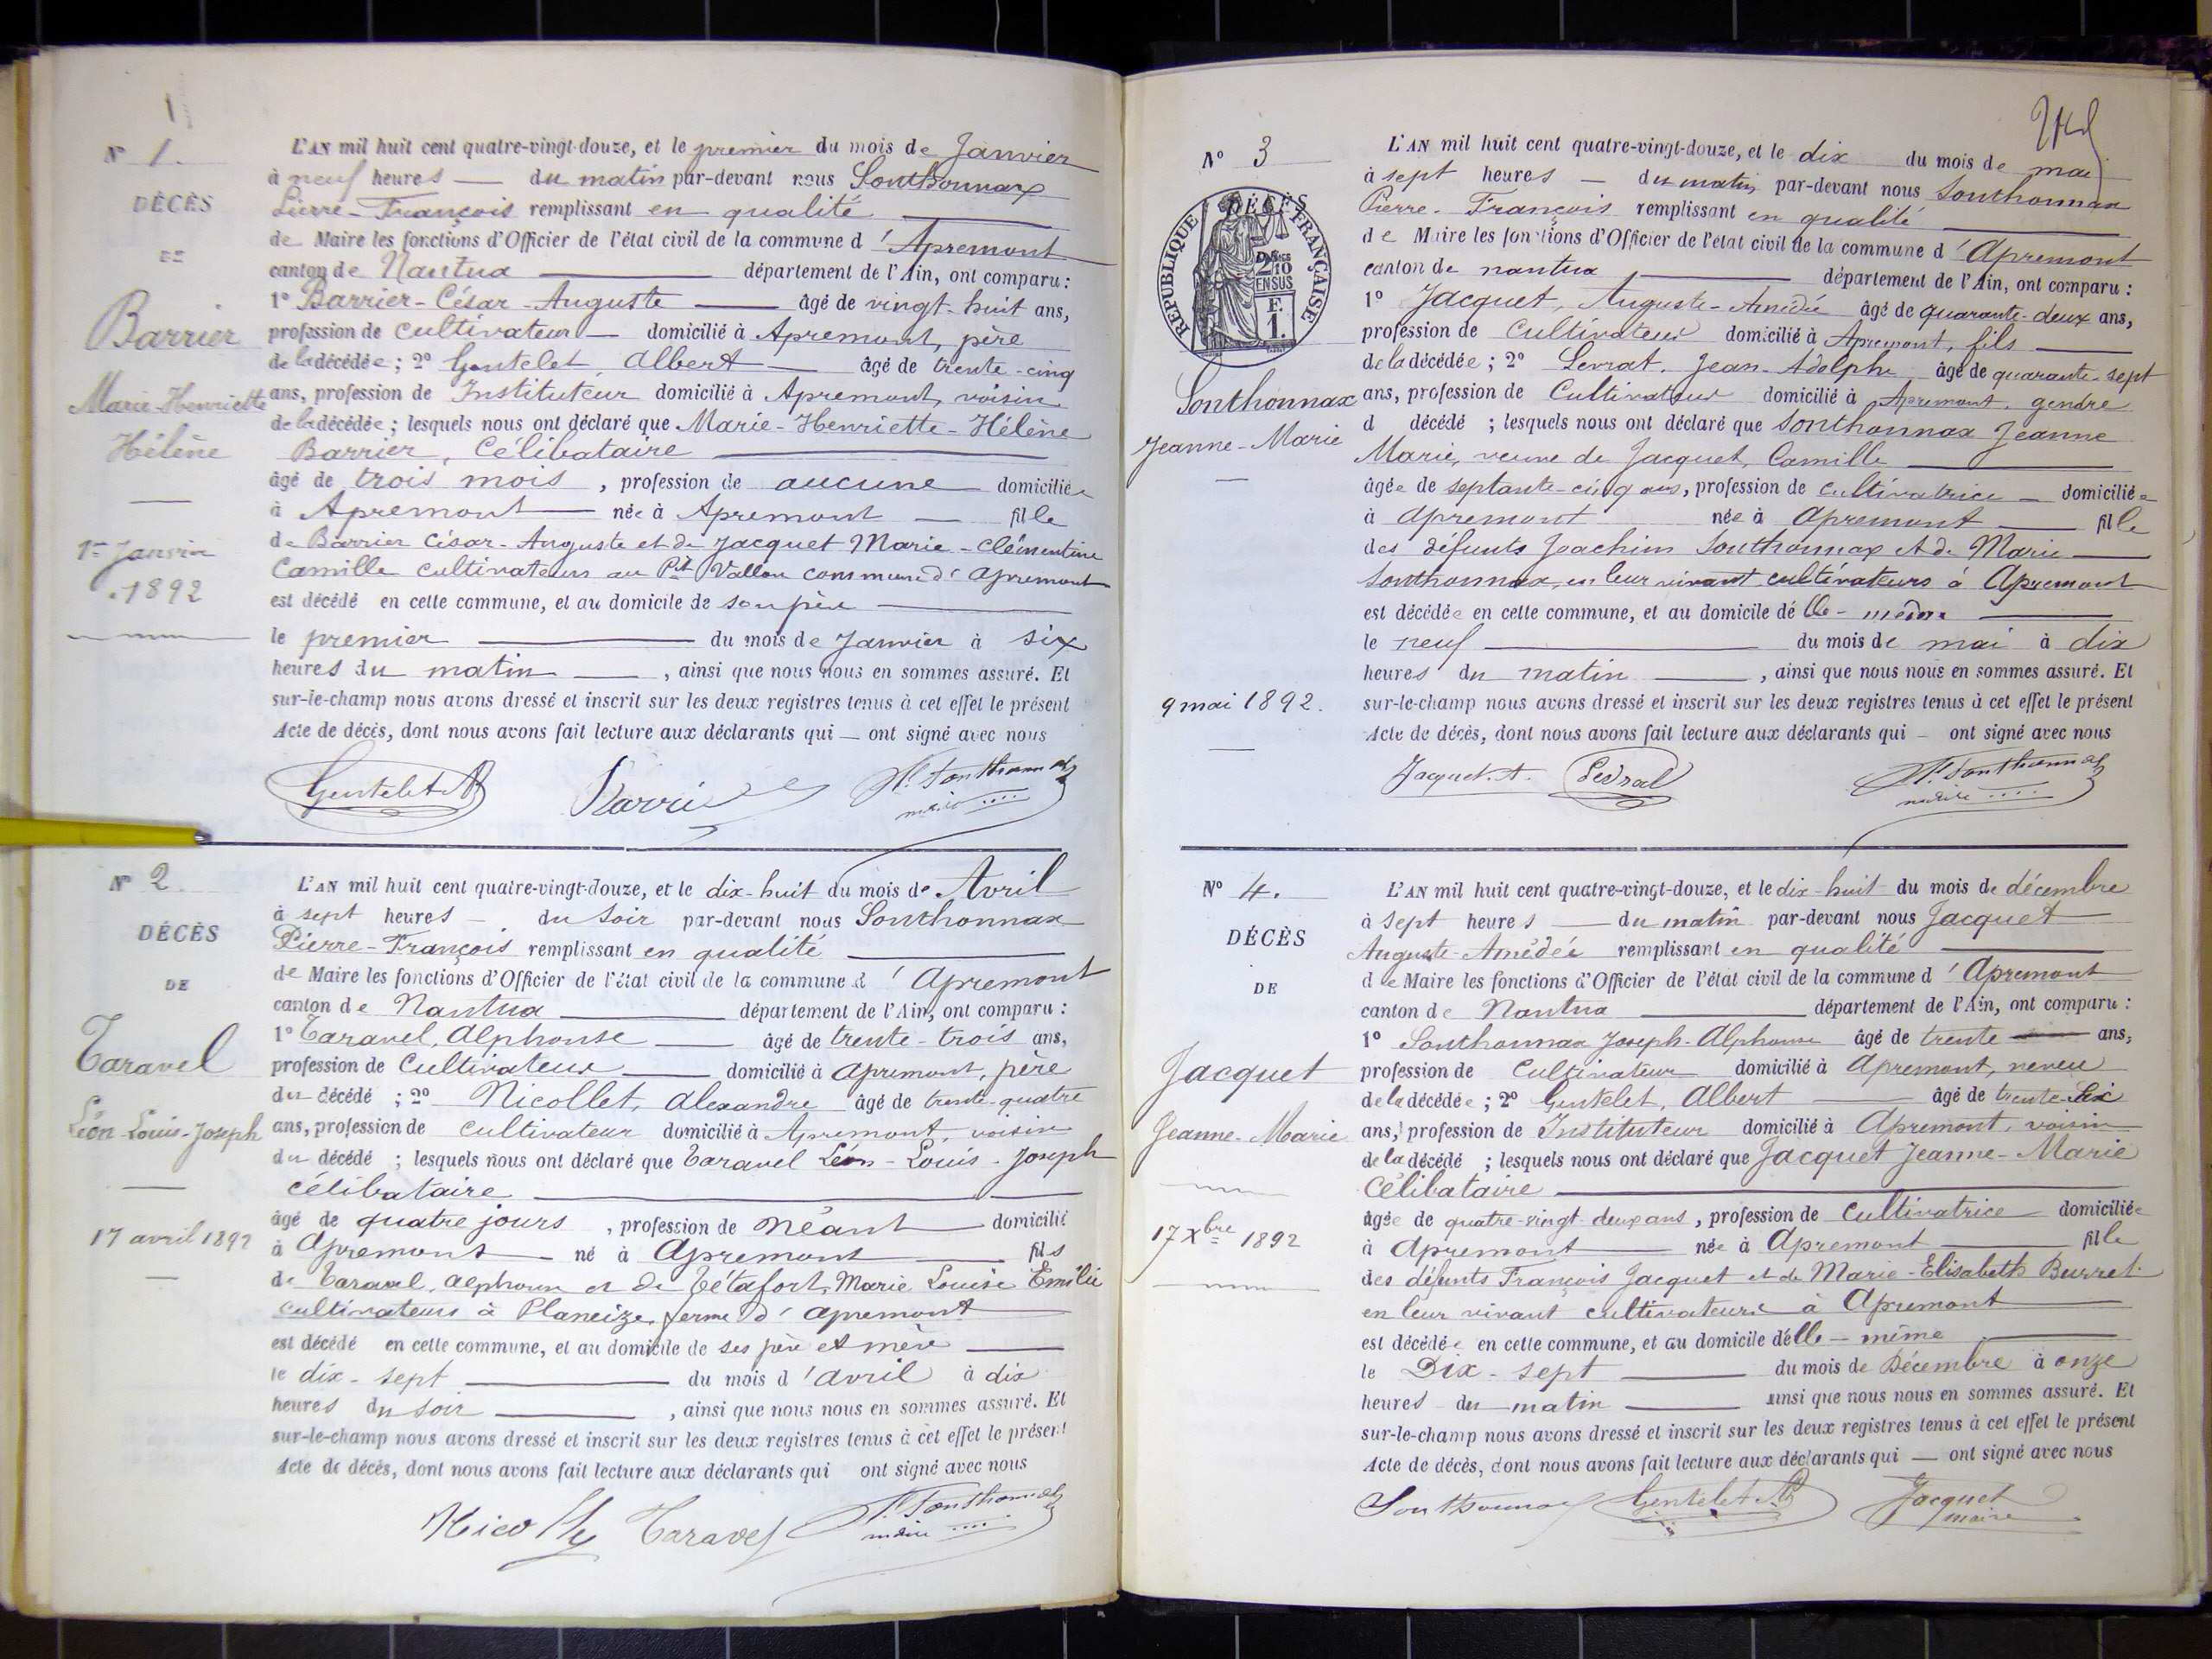 1
N° 1.
DÉCÈS
DE
Barrier
Marie-Henriette
Hélène
1er Janvier
1892
L'AN mil huit cent quatre-vingt-douze, et le premier du mois de Janvier
à neuf heures — du matin par-devant nous Sonthonnax
Pierre-François remplissant en qualité
de Maire les fonctions d'Officier de l'état civil de la commune d'Apremont
canton de Nantua — département de l'Ain, ont comparu :
1° Barrier-César-Auguste — âgé de vingt-huit ans,
profession de cultivateur — domicilié à Apremont, père
de la décédée ; 2° Gentelet, Albert — âgé de trente-cinq
ans, profession de Instituteur domicilié à Apremont, voisin
de la décédée ; lesquels nous ont déclaré que Marie-Henriette-Hélène
Barrier, Célibataire
âgé de trois mois, profession de aucune domiciliée
à Apremont — née à Apremont — fille
de Barrier César-Auguste et de Jacquet Marie-Clémentine
Camille cultivateurs au Pit Vallon commune d'apremont
est décédé en cette commune, et au domicile de son père
le premier — du mois de Janvier à six
heures du matin —, ainsi que nous nous en sommes assuré. Et
sur-le-champ nous avons dressé et inscrit sur les deux registres tenus à cet effet le présent
Acte de décès, dont nous avons fait lecture aux déclarants qui — ont signé avec nous
Gentelet A Barrier P. Sonthonnax
maire
N° 2.
DÉCÈS
DE
Taravel
Léon-Louis-Joseph
17 avril 1892
L'AN mil huit cent quatre-vingt-douze, et le dix-huit du mois de Avril
à sept heures — du soir par-devant nous Sonthonnax
Pierre-François remplissant en qualité
de Maire les fonctions d'Officier de l'état civil de la commune d'Apremont
canton de Nantua — département de l'Ain, ont comparu :
1° Taravel, Alphonse — âgé de trente-trois ans,
profession de Cultivateur — domicilié à Apremont, père
du décédé ; 2° Nicollet, Alexandre âgé de trente-quatre
ans, profession de cultivateur domicilié à Apremont, voisin
du décédé ; lesquels nous ont déclaré que Taravel Léon-Louis-Joseph
célibataire
âgé de quatre jours, profession de Néant — domicilié
à Apremont — né à Apremont — fils
de Taravel, Alphonse et de Tétafort, Marie Louise Emilie
cultivateurs à Planeize, ferme d'apremont
est décédé en cette commune, et au domicile de ses père et mère
le dix-sept — du mois d'avril à dix
heures du soir —, ainsi que nous nous en sommes assuré. Et
sur-le-champ nous avons dressé et inscrit sur les deux registres tenus à cet effet le présent
Acte de décès, dont nous avons fait lecture aux déclarants qui ont signé avec nous
Taravel P. Sonthonnax
maire
N° 3
DÉCÈS
RÉPUBLIQUE FRANÇAISE
2/10
EN SUS
F.
1.
Sonthonnax
Jeanne-Marie
9 mai 1892.
L'AN mil huit cent quatre-vingt-douze, et le dix du mois de mai
à sept heures — du matin par-devant nous Sonthonnax
Pierre-François remplissant en qualité
de Maire les fonctions d'Officier de l'état civil de la commune d'Apremont
canton de nantua — département de l'Ain, ont comparu :
1° Jacquet, Auguste-Amédée âgé de quarante-deux ans,
profession de Cultivateur domicilié à Apremont, fils
de la décédée ; 2° Levrat, Jean-Adolphe âgé de quarante-sept
ans, profession de Cultivateur domicilié à Apremont, gendre
d décédé ; lesquels nous ont déclaré que Sonthonnax Jeanne
Marie, veuve de Jacquet, Camille
âgée de septante-cinq ans, profession de cultivatrice — domiciliée
à Apremont née à Apremont — fille
des défunts Joachim Sonthonnax et de Marie
Sonthonnax, en leur vivant cultivateurs à Apremont
est décédée en cette commune, et au domicile d'elle-même
le neuf — du mois de mai à dix
heures du matin —, ainsi que nous nous en sommes assuré. Et
sur-le-champ nous avons dressé et inscrit sur les deux registres tenus à cet effet le présent
Acte de décès, dont nous avons fait lecture aux déclarants qui — ont signé avec nous
Jacquet. A. Levrat P. Sonthonnax
maire
N° 4.
DÉCÈS
DE
Jacquet
Jeanne-Marie
17 Xbre 1892
L'AN mil huit cent quatre-vingt-douze, et le dix-huit du mois de décembre
à sept heures — du matin par-devant nous Jacquet
Auguste-Amédée remplissant en qualité
de Maire les fonctions d'Officier de l'état civil de la commune d'Apremont
canton de Nantua — département de l'Ain, ont comparu :
1° Sonthonnax Joseph-Alphonse âgé de trente ans,
profession de Cultivateur domicilié à Apremont, neveu
de la décédée ; 2° Gentelet, Albert — âgé de trente-six
ans, profession de Instituteur domicilié à Apremont, voisin
de la décédé ; lesquels nous ont déclaré que Jacquet Jeanne-Marie
Célibataire
âgée de quatre-vingt-deux ans, profession de Cultivatrice domiciliée
à Apremont — née à Apremont — fille
des défunts François Jacquet et de Marie-Elisabeth Burret
en leur vivant cultivateurs à Apremont
est décédée en cette commune, et au domicile d'elle-même
le Dix-sept — du mois de Décembre à onze
heures du matin — ainsi que nous nous en sommes assuré. Et
sur-le-champ nous avons dressé et inscrit sur les deux registres tenus à cet effet le présent
Acte de décès, dont nous avons fait lecture aux déclarants qui — ont signé avec nous
Sonthonnax Gentelet A Jacquet
maire